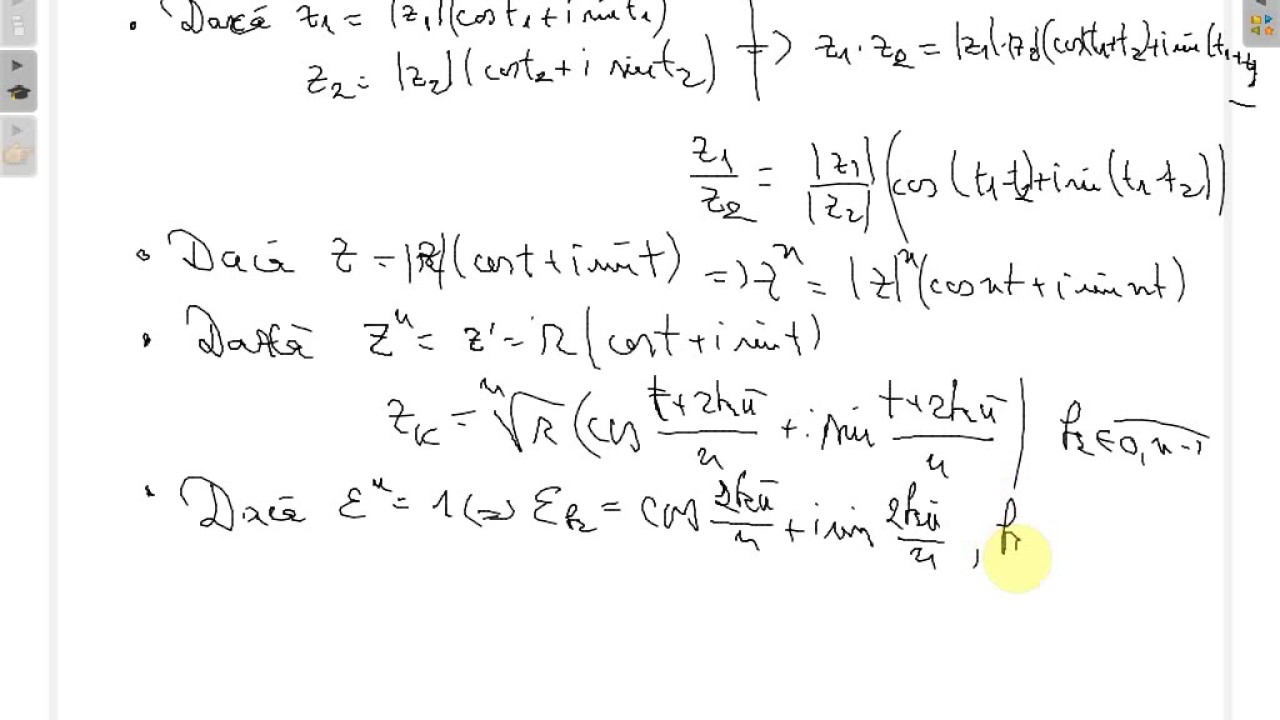 • Dacă z₁ = |z₁|(cos t₁ + i sin t₁)
z₂ = |z₂|(cos t₂ + i sin t₂) => z₁ · z₂ = |z₁|·|z₂|(cos(t₁+t₂)+i sin(t₁+t₂)
z₁/z₂ = |z₁|/|z₂| (cos(t₁-t₂)+i sin(t₁-t₂))
• Dacă z = |z|(cos t + i sin t) => zⁿ = |z|ⁿ(cos nt + i sin nt)
• Dacă zⁿ = z' = r(cos t + i sin t)
z_k = ⁿ√r (cos (t+2kπ)/n + i sin (t+2kπ)/n) k∈0,n-1
• Dacă εⁿ = 1 (=) ε_k = cos 2kπ/n + i sin 2kπ/n , k